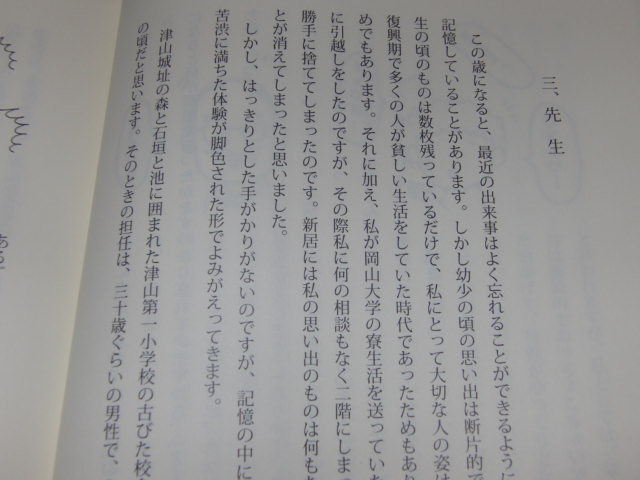 三、先生
この歳になると、最近の出来事はよく忘れることができるように
記憶していることがあります。しかし幼少の頃の思い出は断片的で
生の頃のものは数枚残っているだけで、私にとって大切な人の姿は
復興期で多くの人が貧しい生活をしていた時代であったためもあり
めでもあります。それに加え、私が岡山大学の寮生活を送ってい
に引越しをしたのですが、その際私に何の相談もなく二階にしま
勝手に捨ててしまったのです。新居には私の思い出のものは何も
とが消えてしまったと思いました。
しかし、はっきりとした手がかりがないのですが、記憶の中に
苦渋に満ちた体験が脚色された形でよみがえってきます。
津山城址の森と石垣と池に囲まれた津山第一小学校の古びた校
の頃だと思います。そのときの担任は、三十歳ぐらいの男性で、